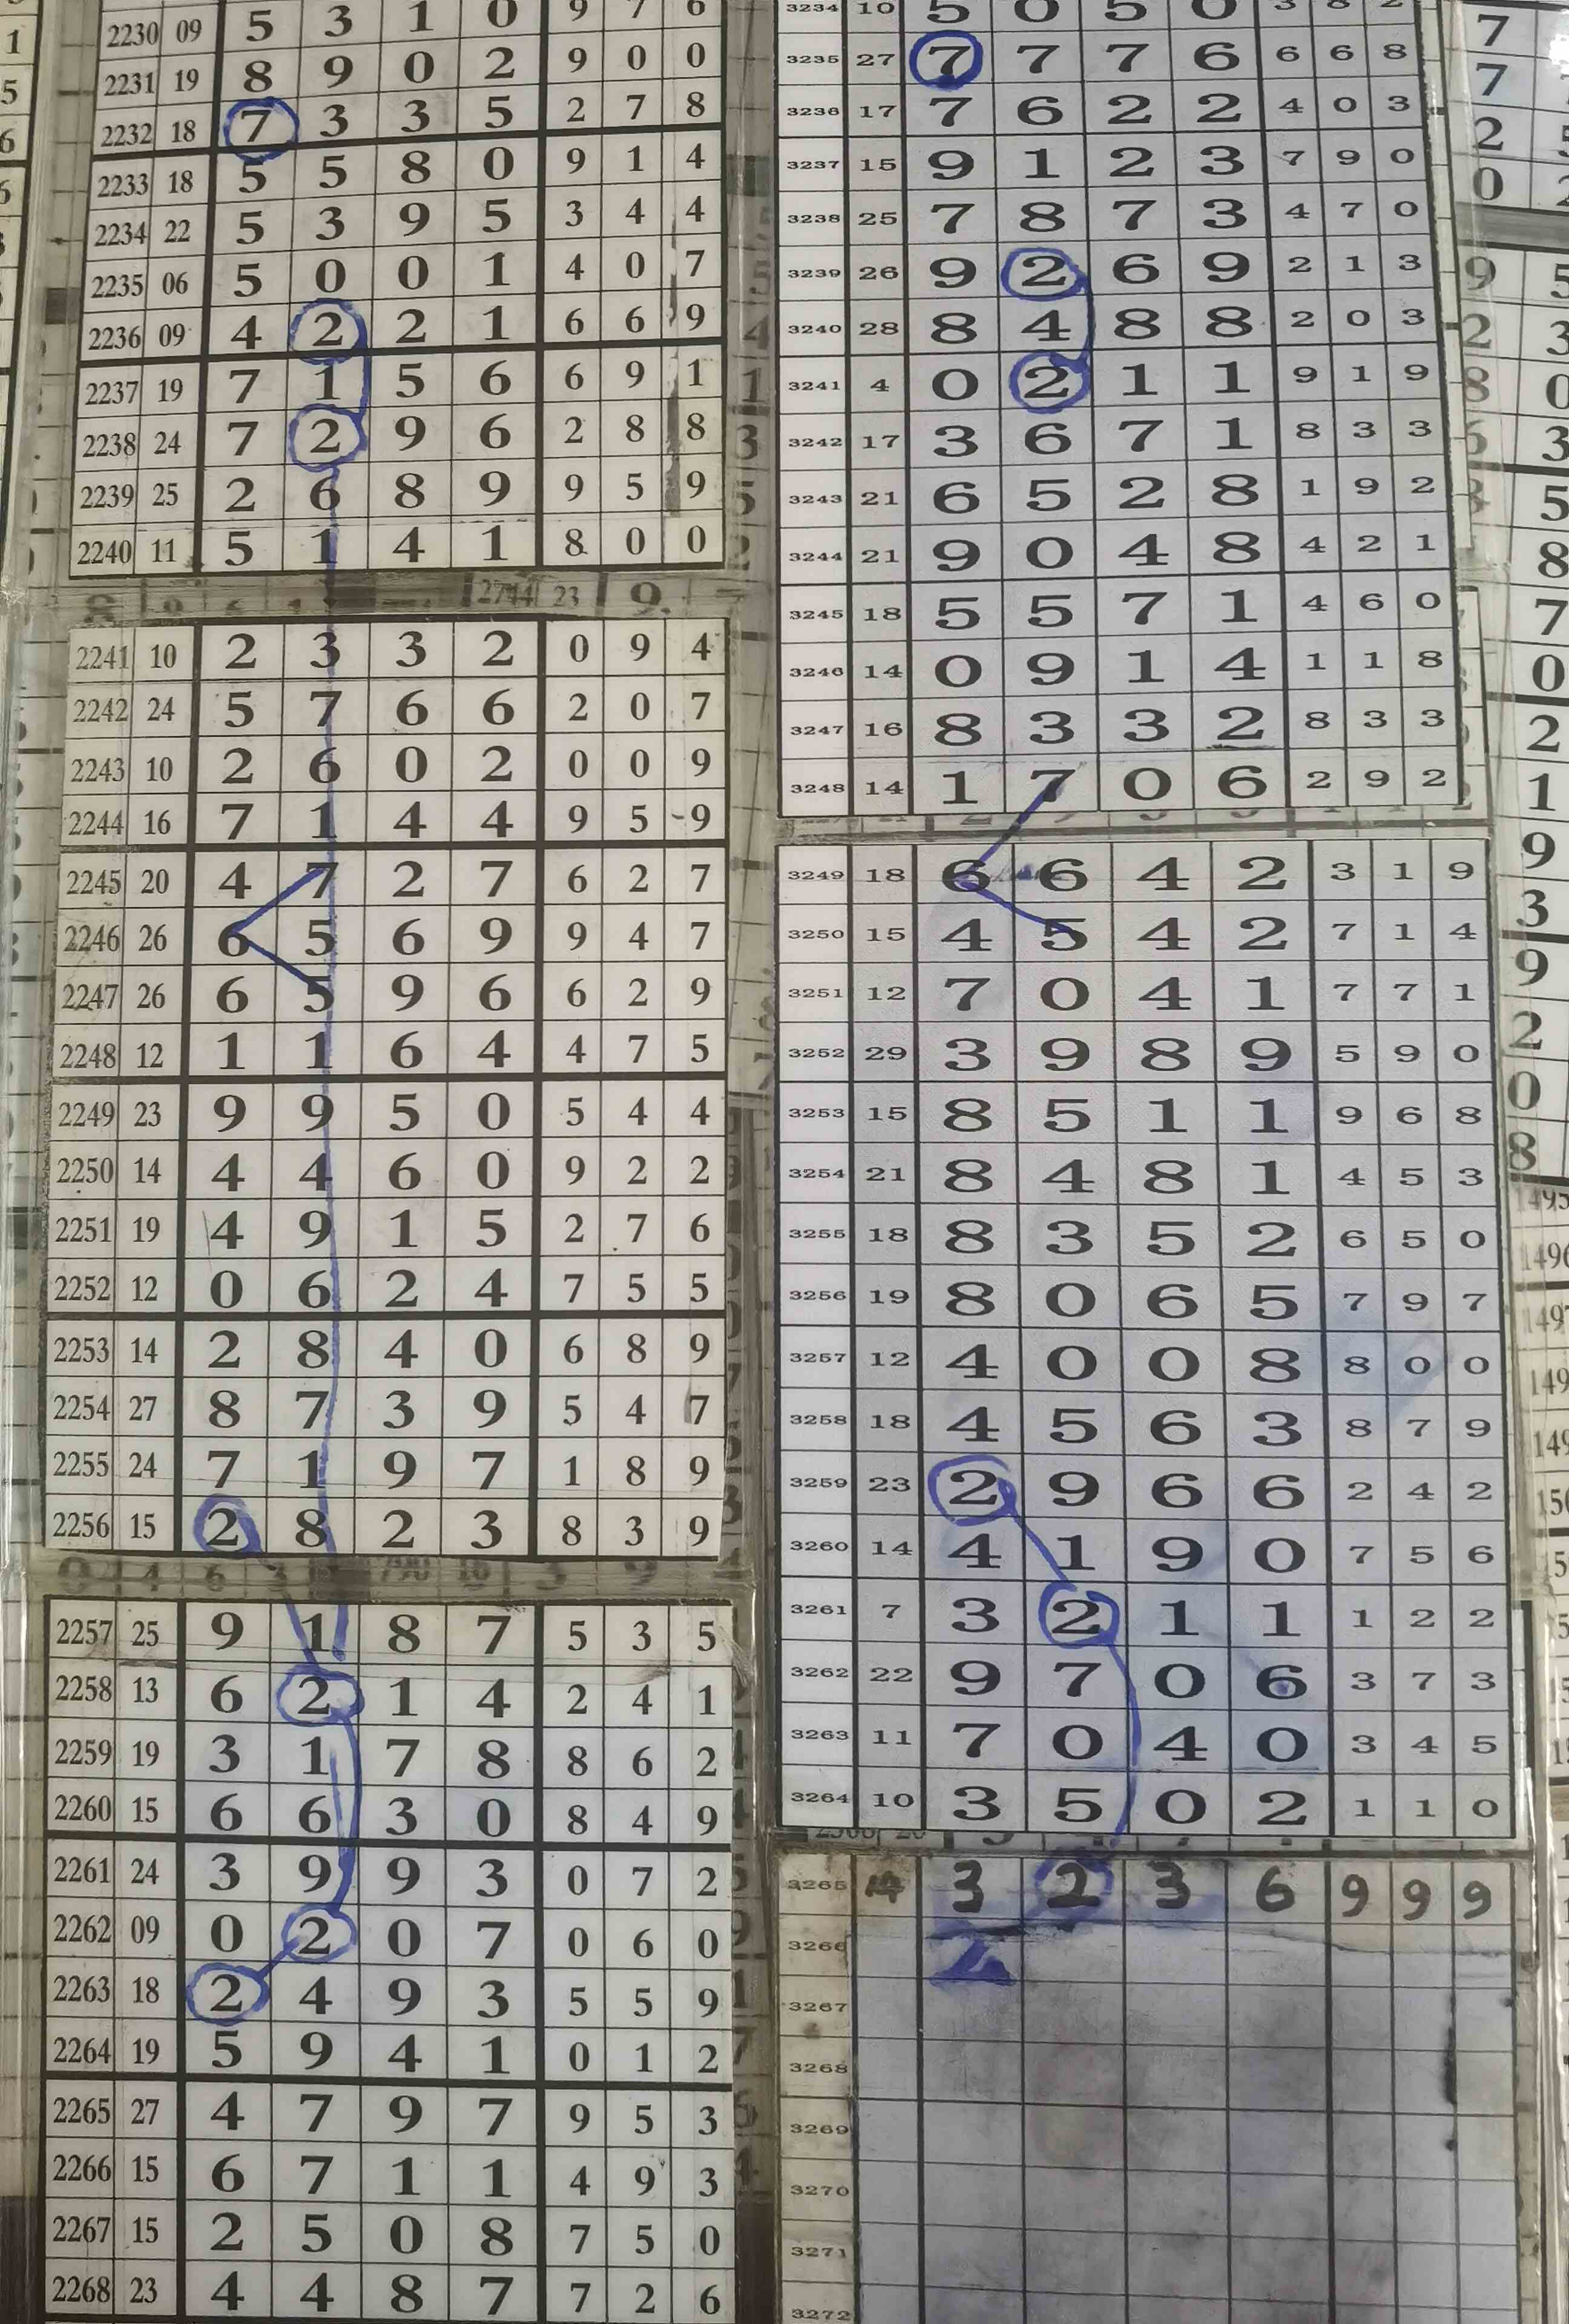 2230 09 5 3 1 0 9 7 6
2231 19 8 9 0 2 9 0 0
2232 18 7 3 3 5 2 7 8
2233 18 5 5 8 0 9 1 4
2234 22 5 3 9 5 3 4 4
2235 06 5 0 0 1 4 0 7
2236 09 4 2 2 1 6 6 9
2237 19 7 1 5 6 6 9 1
2238 24 7 2 9 6 2 8 8
2239 25 2 6 8 9 9 5 9
2240 11 5 1 4 1 8 0 0
2744 23 9
2241 10 2 3 3 2 0 9 4
2242 24 5 7 6 6 2 0 7
2243 10 2 6 0 2 0 0 9
2244 16 7 1 4 4 9 5 9
2245 20 4 7 2 7 6 2 7
2246 26 6 5 6 9 9 4 7
2247 26 6 5 9 6 6 2 9
2248 12 1 1 6 4 4 7 5
2249 23 9 9 5 0 5 4 4
2250 14 4 4 6 0 9 2 2
2251 19 4 9 1 5 2 7 6
2252 12 0 6 2 4 7 5 5
2253 14 2 8 4 0 6 8 9
2254 27 8 7 3 9 5 4 7
2255 24 7 1 9 7 1 8 9
2256 15 2 8 2 3 8 3 9
2257 25 9 1 8 7 5 3 5
2258 13 6 2 1 4 2 4 1
2259 19 3 1 7 8 8 6 2
2260 15 6 6 3 0 8 4 9
2261 24 3 9 9 3 0 7 2
2262 09 0 2 0 7 0 6 0
2263 18 2 4 9 3 5 5 9
2264 19 5 9 4 1 0 1 2
2265 27 4 7 9 7 9 5 3
2266 15 6 7 1 1 4 9 3
2267 15 2 5 0 8 7 5 0
2268 23 4 4 8 7 7 2 6
3234 10 5 0 5 0 3 8 2
3235 27 7 7 7 6 6 6 8
3236 17 7 6 2 2 4 0 3
3237 15 9 1 2 3 7 9 0
3238 25 7 8 7 3 4 7 0
3239 26 9 2 6 9 2 1 3
3240 28 8 4 8 8 2 0 3
3241 4 0 2 1 1 9 1 9
3242 17 3 6 7 1 8 3 3
3243 21 6 5 2 8 1 9 2
3244 21 9 0 4 8 4 2 1
3245 18 5 5 7 1 4 6 0
3246 14 0 9 1 4 1 1 8
3247 16 8 3 3 2 8 3 3
3248 14 1 7 0 6 2 9 2
3249 18 6 6 4 2 3 1 9
3250 15 4 5 4 2 7 1 4
3251 12 7 0 4 1 7 7 1
3252 29 3 9 8 9 5 9 0
3253 15 8 5 1 1 9 6 8
3254 21 8 4 8 1 4 5 3
3255 18 8 3 5 2 6 5 0
3256 19 8 0 6 5 7 9 7
3257 12 4 0 0 8 8 0 0
3258 18 4 5 6 3 8 7 9
3259 23 2 9 6 6 2 4 2
3260 14 4 1 9 0 7 5 6
3261 7 3 2 1 1 1 2 2
3262 22 9 7 0 6 3 7 3
3263 11 7 0 4 0 3 4 5
3264 10 3 5 0 2 1 1 0
3265 14 3 2 3 6 9 9 9
3266
3267
3268
3269
3270
3271
3272